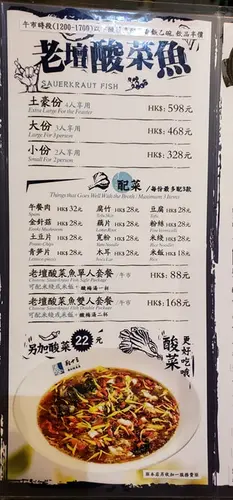 午市時段(1200-1700)
飲品半價
老壇酸菜魚
SAUERKRAUT FISH
土豪份 4人享用 HK$:598元
Extra Large For the Feaster
大份 3人享用 HK$:468元
Large for 3 person
小份 2人享用 HK$:328元
Small For 2 person
配菜 / 每份最多配3款
Things that Goes Well With the Dish / Maximum 3 Items
午餐肉 HK$ 32元 腐竹 HK$ 28元 豆腐 HK$ 28元
金針菇 HK$ 28元 藕片 HK$ 28元 粉絲 HK$ 28元
土豆片 HK$ 28元 寬粉 HK$ 28元 米線 HK$ 28元
青笋片 HK$ 28元 木耳 HK$ 28元 米飯 HK$ 18元
老壇酸菜魚單人套餐 /午市 HK$: 88元
可配米線或米飯，酸梅湯一杯
老壇酸菜魚雙人套餐 /午市 HK$:168元
可配米線或米飯，酸梅湯二杯
另加酸菜 22元
酸菜更好吃哦